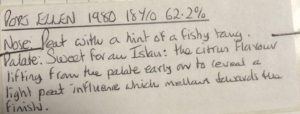 PORT ELLEN 1980 18YO 62.2%
Nose: Peat with a hint of a fishy tang.
Palate: Sweet for an Islay: the citrus flavour
lifting from the palate early on to reveal a
light peat influence which mellows towards the
finish.